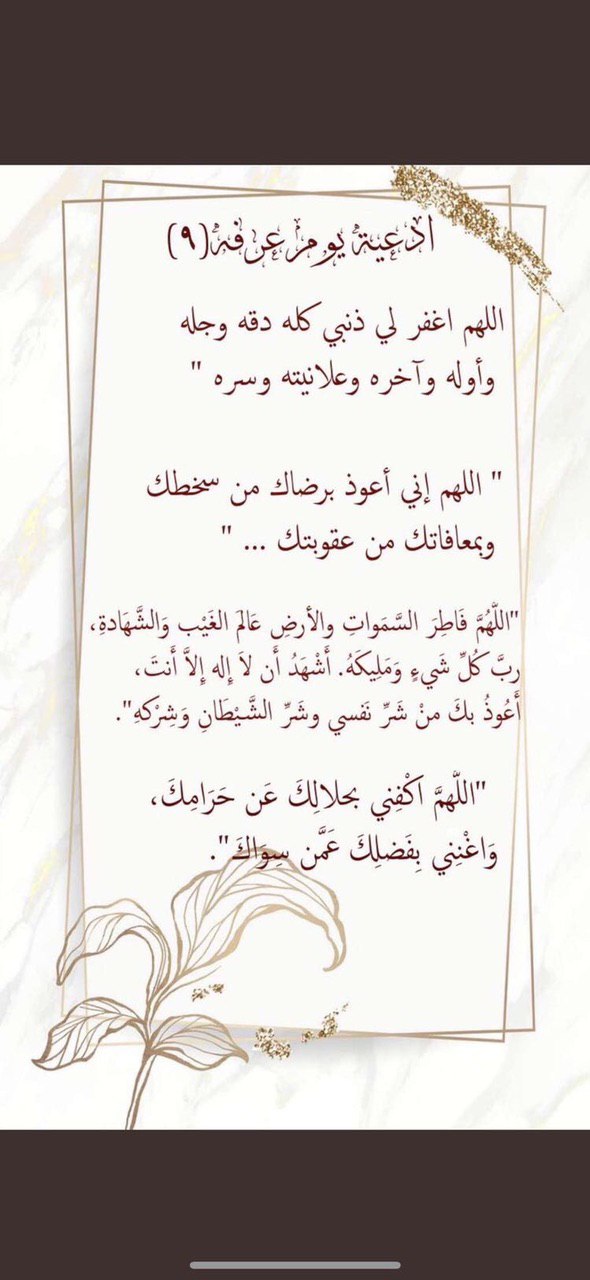 ادعية يوم عرفه (٩)
اللهم اغفر لي ذنبي كله دقه وجله
وأوله وآخره وعلانيته وسره "
" اللهم إني أعوذ برضاك من سخطك
وبمعافاتك من عقوبتك ... "
"اللّهُمَّ فَاطِرَ السَّمَواتِ والأرضِ عَالمَ الغَيْب وَالشَّهَادةِ،
ربَّ كُلِّ شَيءٍ وَمَلِيكَهُ. أَشْهَدُ أَن لاَ إِله إِلاَّ أَنتَ،
أَعُوذُ بكَ منْ شَرِّ نَفسي وشَرِّ الشَّيْطَانِ وَشِرْكهِ".
"اللّهمَّ اكْفِني بحلالِكَ عَن حَرَامِكَ،
وَاغْنِني بِفَضلِكَ عَمَّن سِوَاكَ".